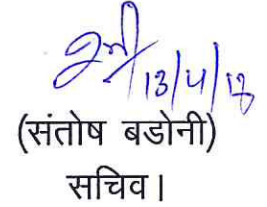 13/4/18
(संतोष बडोनी)
सचिव।